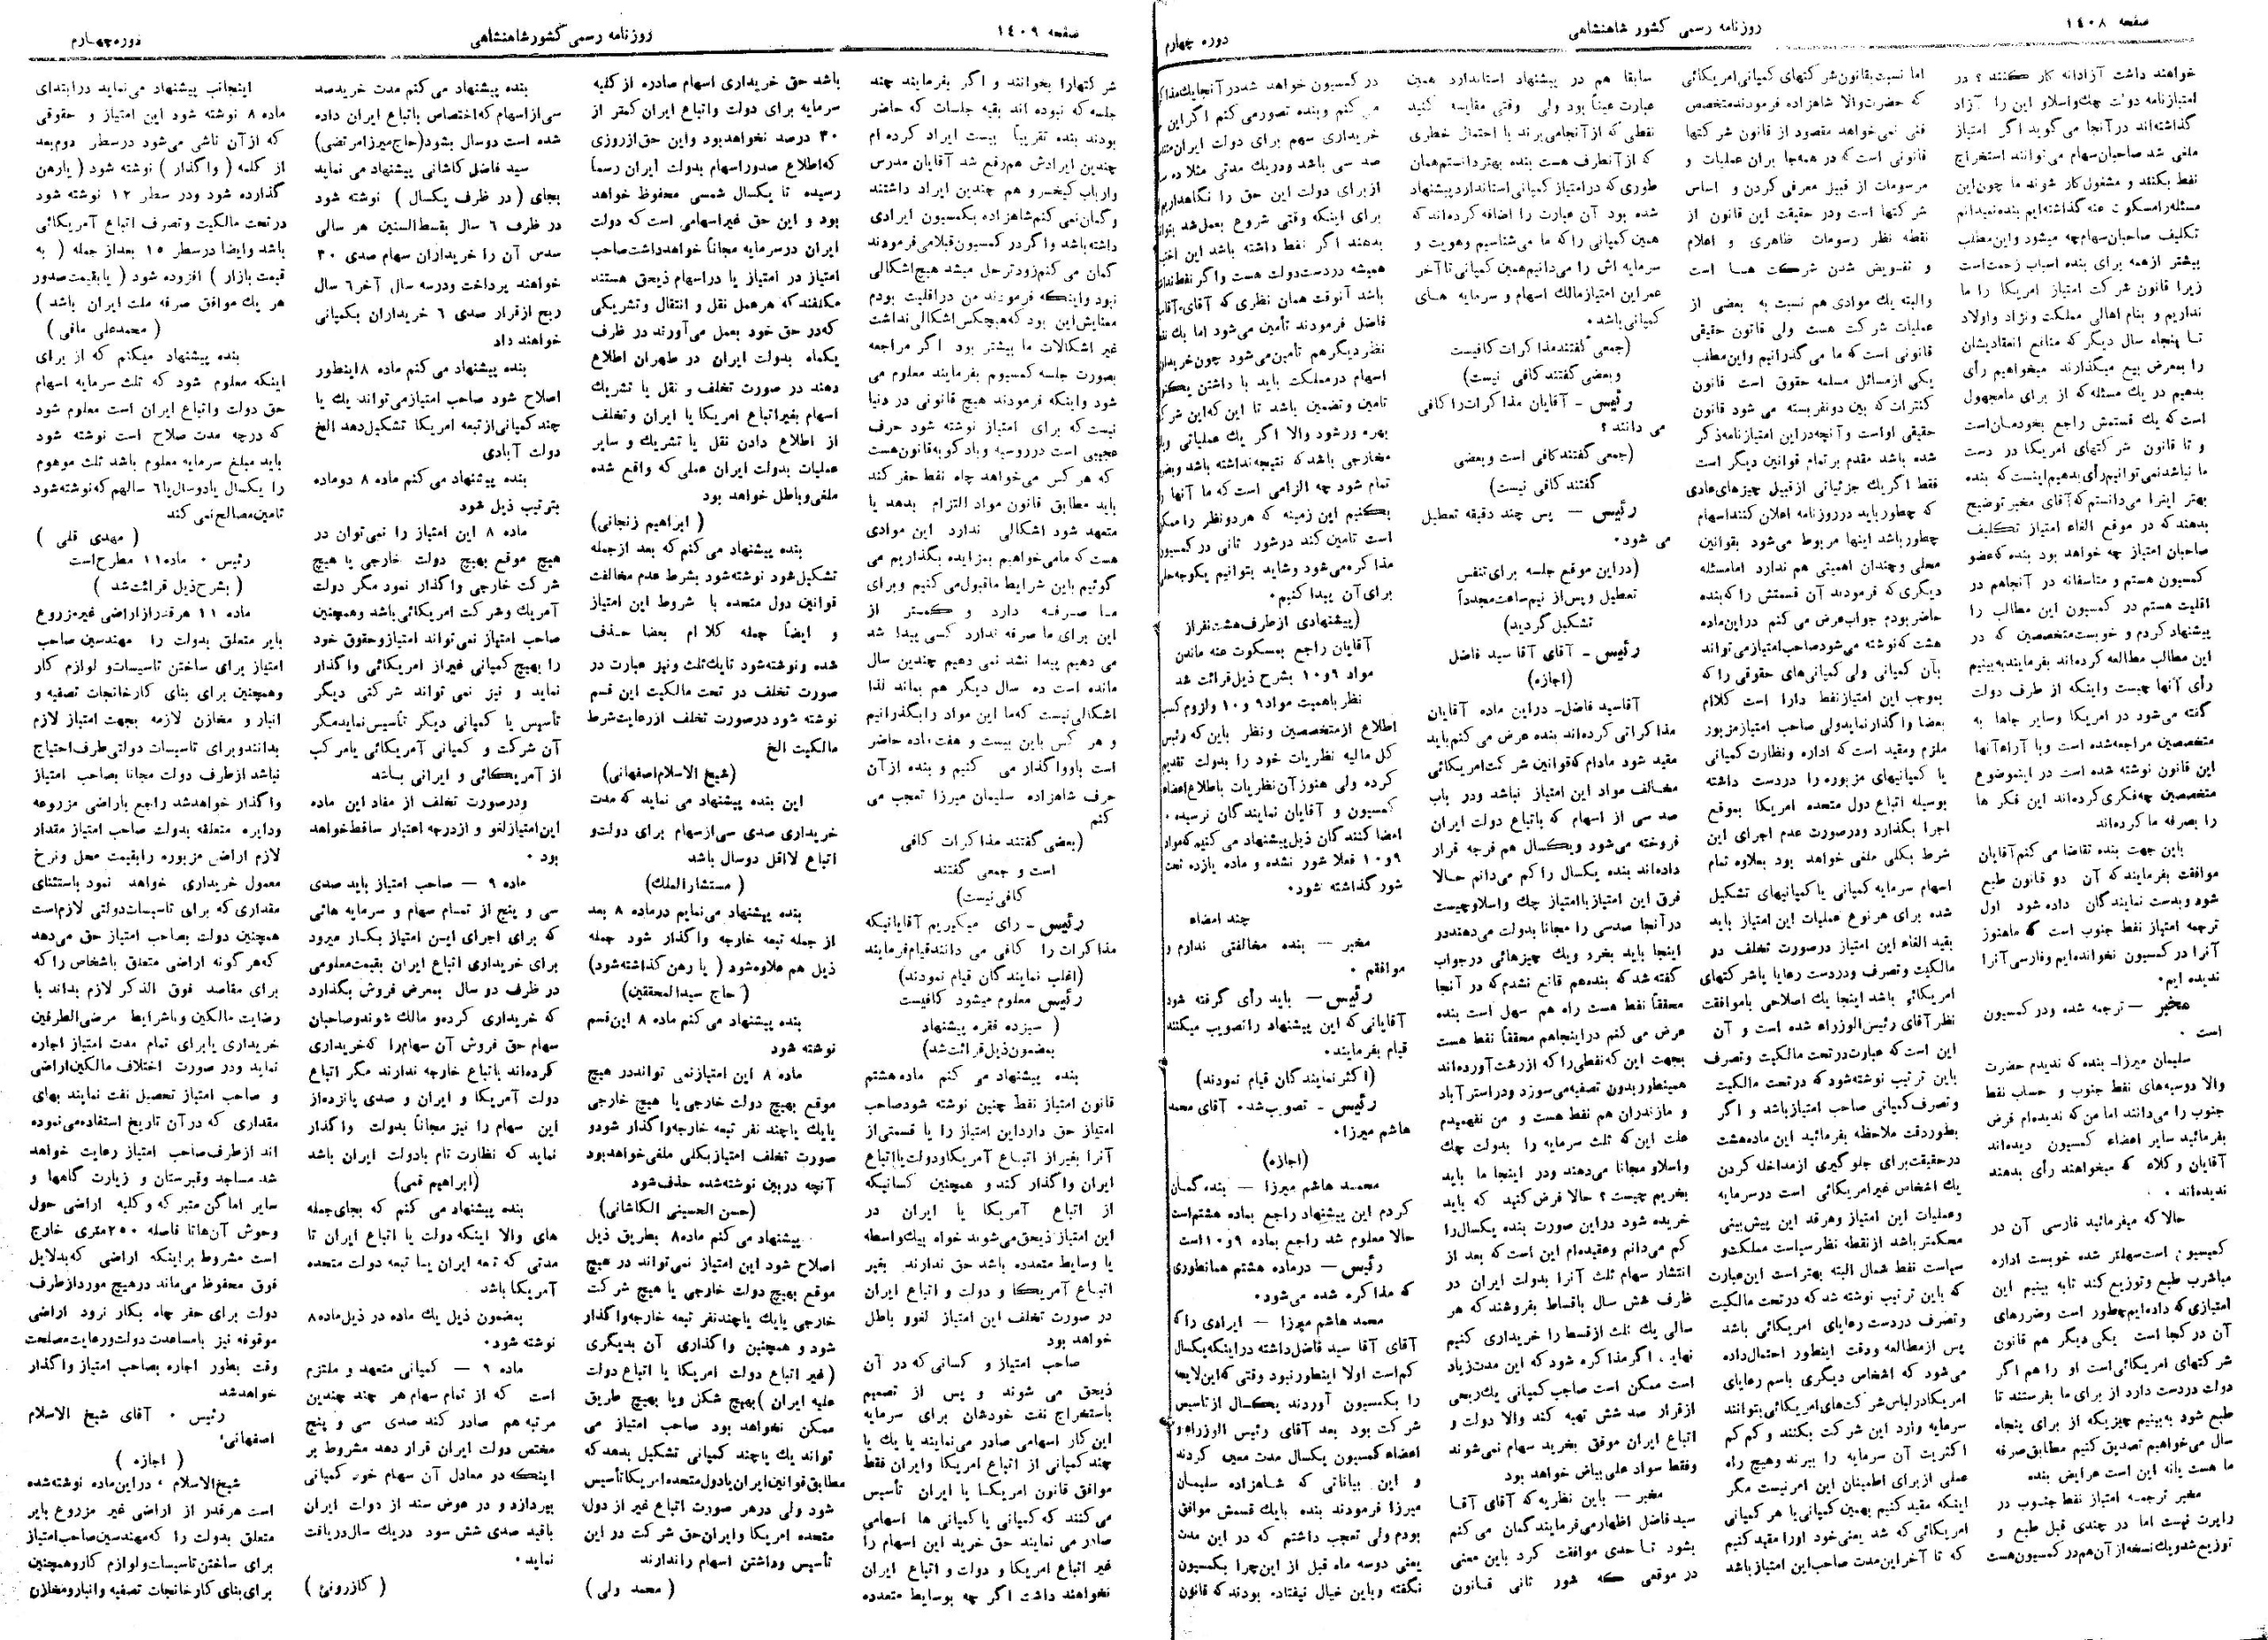 صفحه ۱٤۰۸
روزنامه رسمی کشور شاهنشاهی
دوره چهارم
خواهند داشت آزادانه کار کنند ؟ در
امتیازنامه دولت چك‌واسلاو این را آزاد
گذاشته‌اند در آنجا می گوید اگر امتیاز
ملغی شد صاحبان سهام می توانند استخراج
نفط بکنند و مشغول کار شوند ما چون این
مسئله را مسکوت عنه گذاشته‌ایم بنده نمیدانم
تکلیف صاحبان سهام چه میشود و این مطلب
بیشتر از همه برای بنده اسباب زحمت است
زیرا قانون شرکت امتیاز امریکا را ما
نداریم و بنام اهالی مملکت و نژاد و اولاد
تا پنجاه سال دیگر که منافع انعقادیشان
را بمعرض بیع میگذارند میخواهیم رأی
بدهیم در یك مسئله که از برای ما مجهول
است که یك قسمتش راجع بخودمان است
و تا قانون شرکتهای امریکا در دست
ما نباشد نمی توانیم رأی بدهیم اینست که بنده
بهتر اینرا می‌دانستم که آقای مخبر توضیح
بدهند که در موقع الغاء امتیاز تکلیف
صاحبان امتیاز چه خواهد بود بنده که عضو
کمیسون هستم و متأسفانه در آنجا هم در
اقلیت هستم در کمیسون این مطالب را
پیشنهاد کردم و خوبست متخصصین که در
این مطالب مطالعه کرده‌اند بفرمایند به بینیم
رأی آنها چیست و اینکه از طرف دولت
گفته می‌شود در امریکا و سایر جاها به
متخصصین مراجعه شده است و با آراء آنها
این قانون نوشته شده است در اینموضوع
متخصصین چه فکری کرده‌اند این فکر ها
را بصرفه ما کرده‌اند
باین جهت بنده تقاضا می کنم آقایان
موافقت بفرمایند که آن دو قانون طبع
شود و بدست نمایندگان داده شود اول
ترجمه امتیاز نفط جنوب است که ما هنوز
آنرا در کمسیون نخوانده‌ایم و فارسی آنرا
ندیده ایم.
مخبر — ترجمه شده و در کمسیون
است .
سلیمان میرزاـ بنده که ندیدم حضرت
والا دوسیه‌های نفط جنوب و حساب نفط
جنوب را می‌دانند اما من که ندیده‌ام فرض
بفرمائید سایر اعضاء کمسیون دیده‌اند
آقایان وکلاء که میخواهند رأی بدهند
ندیده‌اند .
حالا که میفرمائید فارسی آن در
کمیسون است سهلتر شده خوبست اداره
مباشرت طبع و توزیع کند تا به بینیم این
امتیازی که داده‌ایم چطور است و ضررهای
آن در کجا است یکی دیگر هم قانون
شرکتهای امریکائی است او را هم اگر
دولت در دست دارد از برای ما بفرستند تا
طبع شود به بینیم چیزیکه از برای پنجاه
سال می خواهیم تصدیق کنیم مطابق صرفه
ما هست یا نه این است عرایض بنده
مخبر ترجمه امتیاز نفط جنوب در
راپرت نیست اما در چندی قبل طبع و
توزیع شد و یك نسخه از آن هم در کمسیون هست
اما نسبت بقانون شرکتهای کمپانی امریکائی
که حضرت والا شاهزاده فرمودند متخصص
فنی نمی خواهد مقصود از قانون شرکتها
قانونی است که در همه جا برای عملیات و
مرسومات از قبیل معرفی کردن و اساس
شرکتها است و در حقیقت این قانون از
نقطه نظر رسومات ظاهری و اعلام
و تفویض شدن شرکت ها است
والبته یك موادی هم نسبت به بعضی از
عملیات شرکت هست ولی قانون حقیقی
قانونی است که ما می گذرانیم و این مطلب
یکی از مسائل مسلمه حقوق است قانون
کنترات که بین دو نفر بسته می شود قانون
حقیقی او است و آنچه در این امتیازنامه ذکر
شده باشد مقدم بر تمام قوانین دیگر است
فقط اگر یك جزئیاتی از قبیل چیز های عادی
که چطور باید در روزنامه اعلان کنند اسهام
چطور باشد اینها مربوط می‌شود بقوانین
محلی و چندان اهمیتی هم ندارد اما مسئله
دیگری که فرمودند آن قسمتش را که بنده
حاضر بودم جواب عرض می کنم در این ماده
هشت که نوشته می شود صاحب امتیاز می تواند
بآن کمپانی ولی کمپانی‌های حقوقی را که
بموجب این امتیاز نفط دارا است کلاام
بعضا واگذار نماید ولی صاحب امتیاز مزبور
ملزم و مقید است که اداره و نظارت کمپانی
یا کمپانیهای مزبوره را در دست داشته
بوسیله اتباع دول متحده امریکا بموقع
اجرا بگذارد و در صورت عدم اجرای این
شرط بکلی ملغی خواهد بود بعلاوه تمام
اسهام سرمایه کمپانی یا کمپانیهای تشکیل
شده برای هر نوع عملیات این امتیاز باید
بقید الغاء این امتیاز در صورت تخلف در
مالکیت و تصرف و در دست رعایا یا شرکتهای
امریکائی باشد اینجا یك اصلاحی با موافقت
نظر آقای رئیس‌الوزراء شده است و آن
این است که عبارت در تحت مالکیت و تصرف
باین ترتیب نوشته شود که در تحت مالکیت
و تصرف کمپانی صاحب امتیاز باشد و اگر
بطور دقت ملاحظه بفرمائید این ماده هشت
در حقیقت برای جلو گیری از مداخله کردن
یك اشخاص غیر امریکائی است در سرمایه
و عملیات این امتیاز و هر قد این پیش بینی
محکمتر باشد از نقطه نظر سیاست مملکت و
سیاست نفط شمال البته بهتر است این عبارت
که باین ترتیب نوشته شد که در تحت مالکیت
و تصرف در دست رعایای امریکائی باشد
پس از مطالعه و دقت اینطور احتمال داده
می‌شود که اشخاص دیگری باسم رعایای
امریکا در لباس شرکت‌های امریکائی بتوانند
سرمایه وارد این شرکت بکنند و کم کم
اکثریت آن سرمایه را ببرند و هیچ راه
عملی از برای اطمینان این امر نیست مگر
اینکه مقید کنیم بهمین کمپانی یا هر کمپانی
امریکائی که شد یعنی خود او را مقید کنیم
که تا آخر این مدت صاحب این امتیاز باشد
سابقا هم در پیشنهاد استاندارد همین
عبارت عیناً بود ولی وقتی مقایسه کنید
نفطی که از آنجا می برند با احتمال خطری
که از آنطرف هست بنده بهتر دانستم همان
طوری که در امتیاز کمپانی استاندارد پیشنهاد
شده بود آن عبارت را اضافه کرده‌اند که
همین کمپانی را که ما می‌شناسیم و هویت و
سرمایه اش را می‌دانیم همین کمپانی تا آخر
عمر این امتیاز مالك اسهام و سرمایه های
کمپانی باشد .
(جمعی گفتند مذاکرات کافیست
و بعضی گفتند کافی نیست)
رئیس ـ آقایان مذاکرات را کافی
می دانند ؟
(جمعی گفتند کافی است و بعضی
گفتند کافی نیست)
رئیس — پس چند دقیقه تعطیل
می شود.
(در این موقع جلسه برای تنفس
تعطیل و پس از نیم ساعت مجدداً
تشکیل گردید)
رئیس ـ آقای آقا سید فاضل
(اجازه)
آقا سید فاضل ـ در این ماده آقایان
مذاکراتی کرده‌اند بنده عرض می کنم باید
مقید شود مادام که قوانین شرکت امریکائی
مخالف مواد این امتیاز نباشد و در باب
صد سی از اسهام که باتباع دولت ایران
فروخته می‌شود و یکسال هم فرجه قرار
داده‌اند بنده یکسال را کم می دانم حالا
فرق این امتیاز با امتیاز چك و اسلاو چیست
در آنجا صد سی را مجانا بدولت می‌دهند در
اینجا باید بخرد و یك چیزهائی در جواب
گفته شد که بنده هم قانع نشدم که در آنجا
محققاً نفط هست راه هم سهل است بنده
عرض می کنم در اینجا هم محققاً نفط هست
بجهت این که نفطی را که از رشت آورده‌اند
همینطور بدون تصفیه می سوزد و در استرآباد
و مازندران هم نفط هست و من نفهمیدم
علت این که ثلث سرمایه را بدولت چك
و اسلاو مجانا می‌دهند و در اینجا ما باید
بخریم چیست ؟ حالا فرض کنید که باید
خریده شود در این صورت بنده یکسال را
کم می‌دانم و عقیده‌ام این است که بعد از
انتشار سهام ثلث آنرا بدولت ایران در
ظرف شش سال باقساط بفروشند که هر
سالی یك ثلث از قسط را خریداری کنیم
نهایت، اگر مذاکره شود که این مدت زیاد
است ممکن است صاحب کمپانی یك ربحی
از قرار صد شش تهیه کند والا دولت و
اتباع ایران موفق بخرید سهام نمی‌شوند
و فقط سواد علی بیاض خواهد بود
مخبر — باین نظریه که آقای آقا
سید فاضل اظهار می‌فرمایند گمان می کنم
بشود تا حدی موافقت کرد باین معنی
در موقعی که شور ثانی قانون
در کمسیون خواهد شد در آنجا یك مذاکر
می کنم و بنده تصور می کنم اگر این
خریداری سهم برای دولت ایران
صد سی باشد و در یك مدتی مثلا ده س
از برای دولت این حق را نگاهداریم
برای اینکه وقتی شروع بعمل شد بتو
بدهند اگر نفط داشته باشد این اختی
همیشه در دست دولت هست و اگر نفط ندا
باشد آنوقت همان نظری که آقای آقا
فاضل فرمودند تأمین می‌شود اما یك نق
نظر دیگر هم تأمین می شود چون خریدار
اسهام در مملکت باید با داشتن یك
تامین و تضمین باشد تا این که این شرک
بهره ور شود والا اگر یك عملیاتی و یا
مخارجی باشد که نتیجه نداشته باشد و بضر
تمام شود چه الزامی است که ما آنها ر
بکنیم این زمینه که هر دو نظر را ممکن
است تامین کند در شور ثانی در کمسیون
مذاکره می‌شود و شاید بتوانیم یك وجه حلی
برای آن پیدا کنیم.
(پیشنهادی از طرف هشت نفر از
آقایان راجع بمسکوت عنه ماندن
مواد ۹ و ۱۰ بشرح ذیل قرائت شد
نظر باهمیت مواد ۹ و ۱۰ و لزوم کسب
اطلاع از متخصصین و نظر باین که رئیس
کل مالیه نظریات خود را بدولت تقدیم
کرده ولی هنوز آن نظریات باطلاع اعضاء
کمسیون و آقایان نمایندگان نرسیده .
امضا کنندگان ذیل پیشنهاد می کنیم که مواد
۹ و ۱۰ فعلا شور نشده و ماده یازده تحت
شور گذاشته شود.
چند امضاء
مخبر — بنده مخالفتی ندارم و
موافقم .
رئیس — باید رأی گرفته شود
آقایانی که این پیشنهاد را تصویب میکنند
قیام بفرمایند.
(اکثر نمایندگان قیام نمودند)
رئیس ـ تصویب شد. آقای محمد
هاشم میرزا.
(اجازه)
محمد هاشم میرزا — بنده گمان
کردم این پیشنهاد راجع بماده هشتم است
حالا معلوم شد راجع بماده ۹ و ۱۰ است
رئیس — در ماده هشتم همانطوری
که مذاکره شده می‌شود.
محمد هاشم میرزا — ایرادی را که
آقای آقا سید فاضل داشته در اینکه یکسال
کم است اولا اینطور نبود وقتی که این لایحه
را بکمسیون آوردند یکسال از تاسیس
شرکت بود بعد آقای رئیس الوزراء و
اعضاء کمسیون یکسال مدت معین کردند
و این بیاناتی که شاهزاده سلیمان
میرزا فرمودند بنده بایك قسمتش موافق
بودم ولی تعجب داشتم که در این مدت
یعنی دو سه ماه قبل از این چرا بکمسیون
نگفته و باین خیال نیفتاده بودند که قانون
صفحه ۱٤۰۹
روزنامه رسمی کشور شاهنشاهی
دوره چهارم
شرکتهارا بخوانند و اگر بفرمایند چند
جلسه که نبوده اند بقیه جلسات که حاضر
بودند بنده تقریباً بیست ایراد کرده ام
چندین ایرادش هم رفع شد آقایان مدرس
وارباب کیخسرو هم چندین ایراد داشتند
و گمان نمی کنم شاهزاده بکمسیون ایرادی
داشته باشد و اگر در کمسیون قبلا می فرمودند
گمان می کنم زودتر حل میشد هیچ اشکالی
نبود و اینکه فرمودند من در اقلیت بودم
معنایش این بود که هیچکس اشکالی نداشت
غیر اشکالات ما بیشتر بود اگر مراجعه
بصورت جلسه کمسیون بفرمایند معلوم می
شود و اینکه فرمودند هیچ قانونی در دنیا
نیست که برای امتیاز نوشته شود حرف
عجیبی است در روسیه و بادکوبه قانون هست
که هر کس می‌خواهد چاه نفط حفر کند
باید مطابق قانون مواد التزام بدهد یا
متعهد شود اشکالی ندارد این موادی
هست که ما می خواهیم بمزایده بگذاریم می
گوئیم باین شرایط ما قبول می کنیم و برای
ما صرفه دارد و کمتر از
این برای ما صرفه ندارد کسی پیدا شد
می دهیم پیدا نشد نمی دهیم چندین سال
مانده است ده سال دیگر هم بماند لذا
اشکالی نیست که ما این مواد را بگذرانیم
و هر کس باین بیست و هفت ماده حاضر
است باو واگذار می کنیم و بنده از آن
حرف شاهزاده سلیمان میرزا تعجب می
کنم
(بعضی گفتند مذاکرات کافی
است و جمعی گفتند
کافی نیست)
رئیس ـ رای میگیریم آقایانیکه
مذاکرات را کافی می دانند قیام فرمایند
(اغلب نمایندگان قیام نمودند)
رئیس معلوم میشود کافیست
( سیزده فقره پیشنهاد
بمضمون ذیل قرائت شد)
بنده پیشنهاد می کنم ماده هشتم
قانون امتیاز نفط چنین نوشته شود صاحب
امتیاز حق دارد این امتیاز را یا قسمتی از
آنرا بغیر از اتباع آمریکا و دولت یا اتباع
ایران واگذار کند و همچنین کسانیکه
از اتباع آمریکا یا ایران در
این امتیاز ذیحق می‌شوند خواه بیك واسطه
یا وسایط متعدده باشد حق ندارند بغیر
اتباع آمریکا و دولت و اتباع ایران
در صورت تخلف این امتیاز لغو و باطل
خواهد بود
صاحب امتیاز و کسانی که در آن
ذیحق می شوند و پس از تصمیم
باستخراج نفت خودشان برای سرمایه
این کار اسهامی صادر می‌نمایند یا یك یا
چند کمپانی از اتباع امریکا و ایران فقط
موافق قانون امریکا یا ایران تأسیس
می‌کنند که کمپانی یا کمپانی ها اسهامی
صادر می نمایند حق خرید این اسهام را
غیر اتباع امریکا و دولت و اتباع ایران
نخواهند داشت اگر چه بوسایط متعدده
باشد حق خریداری اسهام صادره از کلیه
سرمایه برای دولت و اتباع ایران کمتر از
۳۰ درصد نخواهد بود و این حق از روزی
که اطلاع صدور اسهام بدولت ایران رسماً
رسیده تا یکسال شمسی محفوظ خواهد
بود و این حق غیر اسهامی است که دولت
ایران در سرمایه مجاناً خواهد داشت صاحب
امتیاز در امتیاز یا در اسهام ذیحق هستند
مکلفند که هر عمل نقل و انتقال و تشریکی
که در حق خود بعمل می آورند در ظرف
یکماه بدولت ایران در طهران اطلاع
دهند در صورت تخلف و نقل یا تشریك
اسهام بغیر اتباع امریکا یا ایران و تخلف
از اطلاع دادن نقل یا تشریك و سایر
عملیات بدولت ایران عملی که واقع شده
ملغی و باطل خواهد بود
( ابراهیم زنجانی)
بنده پیشنهاد می کنم که بعد از جمله
تشکیل شود نوشته شود بشرط عدم مخالفت
قوانین دول متحده با شروط این امتیاز
و ایضاً جمله کلا ام بعضا حذف
شده و نوشته شود تا یك ثلث و نیز عبارت در
صورت تخلف در تحت مالکیت این قسم
نوشته شود در صورت تخلف از رعایت شرط
مالکیت الخ
(شیخ الاسلام اصفهانی)
این بنده پیشنهاد می نماید که مدت
خریداری صدی سی از سهام برای دولت و
اتباع لااقل دو سال باشد
( مستشار الملك)
بنده پیشنهاد می‌نمایم در ماده ۸ بعد
از جمله تبعه خارجه واگذار شود جمله
ذیل هم علاوه شود ( یا رهن گذاشته شود)
( حاج سید المحققین)
بنده پیشنهاد می کنم ماده ۸ این قسم
نوشته شود
ماده ۸ این امتیاز نمی تواند در هیچ
موقع بهیچ دولت خارجی یا هیچ خارجی
یا یك یا چند نفر تبعه خارجه واگذار شود و
صورت تخلف امتیاز بکلی ملغی خواهد بود
آنچه در بین نوشته شده حذف شود
(حسن الحسینی الکاشانی)
پیشنهاد می کنم ماده ۸ بطریق ذیل
اصلاح شود این امتیاز نمی تواند در هیچ
موقع بهیچ دولت خارجی یا هیچ شرکت
خارجی یا یك یا چند نفر تبعه خارجه واگذار
شود و همچنین واگذاری آن بدیگری
(غیر اتباع دولت امریکا یا اتباع دولت
علیه ایران ) بهیچ شکل و یا بهیچ طریق
ممکن نخواهد بود صاحب امتیاز می
تواند یك یا چند کمپانی تشکیل بدهد که
مطابق قوانین ایران یا دول متحده امریکا تأسیس
شود ولی در هر صورت اتباع غیر از دول
متحده امریکا و ایران حق شرکت در این
تأسیس و داشتن اسهام را ندارند
( محمد ولی )
بنده پیشنهاد می کنم مدت خرید صد
سی از اسهام که اختصاص باتباع ایران داده
شده است دو سال بشود (حاج میرزا مرتضی)
سید فاضل کاشانی پیشنهاد می نماید
بجای ( در ظرف یکسال ) نوشته شود
در ظرف ٦ سال بقسط السنین هر سالی
سدس آن را خریداران سهام صدی ۳۰
خواهند پرداخت و در سه سال آخر ٦ سال
ربح از قرار صدی ٦ خریداران بکمپانی
خواهند داد
بنده پیشنهاد می کنم ماده ۸ اینطور
اصلاح شود صاحب امتیاز می تواند یك یا
چند کمپانی از تبعه امریکا تشکیل دهد الخ
دولت آبادی
بنده پیشنهاد می کنم ماده ۸ دو ماده
بترتیب ذیل شود
ماده ۸ این امتیاز را نمی توان در
هیچ موقع بهیچ دولت خارجی یا هیچ
شرکت خارجی واگذار نمود مگر دولت
آمریك و شرکت امریکائی باشد و همچنین
صاحب امتیاز نمی تواند امتیاز و حقوق خود
را بهیچ کمپانی غیر از امریکائی واگذار
نماید و نیز نمی تواند شرکتی دیگر
تأسیس یا کمپانی دیگر تأسیس نماید مگر
آن شرکت و کمپانی آمریکائی یا مرکب
از آمریکائی و ایرانی باشد
و در صورت تخلف از مفاد این ماده
این امتیاز لغو و از درجه اعتبار ساقط خواهد
بود .
ماده ۹ — صاحب امتیاز باید صدی
سی و پنج از تمام سهام و سرمایه هائی
که برای اجرای این امتیاز بکار میرود
برای خریداری اتباع ایران بقیمت معلومی
در ظرف دو سال بمعرض فروش بگذارد
که خریداری کرده و مالك شوند و صاحبان
سهام حق فروش آن سهام را که خریداری
کرده‌اند باتباع خارجه ندارند مگر اتباع
دولت آمریکا و ایران و صدی پانزده از
این سهام را نیز مجاناً بدولت واگذار
نماید که نظارت تام با دولت ایران باشد
(ابراهیم قمی)
بنده پیشنهاد می کنم که بجای جمله
های والا اینکه دولت یا اتباع ایران تا
مدتی که تبعه ایران یا تبعه دولت متحده
آمریکا باشد.
بمضمون ذیل یك ماده در ذیل ماده ۸
نوشته شود.
ماده ۹ — کمپانی متعهد و ملتزم
است که از تمام سهام هر چند چندین
مرتبه هم صادر کند صدی سی و پنج
مختص دولت ایران قرار دهد مشروط بر
اینکه در معادل آن سهام خود کمپانی
بپردازد و در عوض سند از دولت ایران
باقید صدی شش سود در یك سال دریافت
نماید .
( کازرونی )
اینجانب پیشنهاد می نماید در ابتدای
ماده ۸ نوشته شود این امتیاز و حقوقی
که از آن ناشی می‌شود در سطر دوم بعد
از کلمه ( واگذار ) نوشته شود ( یا رهن
گذارده شود و در سطر ۱۲ نوشته شود
در تحت مالکیت و تصرف اتباع آمریکائی
باشد و ایضا در سطر ۱۵ بعد از جمله ( به
قیمت بازار ) افزوده شود ( یا بقیمت صدور
هر یك موافق صرفه ملت ایران باشد )
( محمد علی مافی )
بنده پیشنهاد میکنم که از برای
اینکه معلوم شود که ثلث سرمایه اسهام
حق دولت و اتباع ایران است معلوم شود
که در چه مدت صلاح است نوشته شود
باید مبلغ سرمایه معلوم باشد ثلث موهوم
را یکسال یا دو سال یا ٦ سال هم که نوشته شود
تامین مصالح نمی کند
( مهدی قلی )
رئیس . ماده ۱۱ مطرح است
( بشرح ذیل قرائت شد )
ماده ۱۱ هر قدر از اراضی غیر مزروع
بایر متعلق بدولت را مهندسین صاحب
امتیاز برای ساختن تاسیسات و لوازم کار
و همچنین برای بنای کارخانجات تصفیه و
انبار و مخازن لازمه بجهت امتیاز لازم
بدانند و برای تاسیسات دولتی طرف احتیاج
نباشد از طرف دولت مجانا بصاحب امتیاز
واگذار خواهد شد راجع باراضی مزروعه
و دایره متعلقه بدولت صاحب امتیاز مقدار
لازم اراضی مزبوره را بقیمت محل و نرخ
معمول خریداری خواهد نمود باستثنای
مقداری که برای تاسیسات دولتی لازم است
همچنین دولت بصاحب امتیاز حق می‌دهد
که هر گونه اراضی متعلق باشخاص را که
برای مقاصد فوق الذکر لازم بداند با
رضایت مالکین و با شرایط مرضی الطرفین
خریداری یا برای تمام مدت امتیاز اجاره
نماید و در صورت اختلاف مالکین اراضی
و صاحب امتیاز تحصیل نفت نمایند بهای
مقداری که در آن تاریخ استفاده می‌نموده
اند از طرف صاحب امتیاز رعایت خواهد
شد مساجد و قبرستان و زیارت گاهها و
سایر اماکن متبرکه و کلیه اراضی حول
و حوش آن‌ها تا فاصله ۲۵۰ متری خارج
است مشروط بر اینکه اراضی که بدلایل
فوق محفوظ می‌ماند در هیچ مورد از طرف
دولت برای حفر چاه بکار نرود اراضی
موقوفه نیز بامساعدت دولت و رعایت مصلحت
وقت بطور اجاره بصاحب امتیاز واگذار
خواهد شد
رئیس . آقای شیخ الاسلام
اصفهانی.
( اجازه )
شیخ الاسلام ، در این ماده نوشته شده
است هر قدر از اراضی غیر مزروع بایر
متعلق بدولت را که مهندسین صاحب امتیاز
برای ساختن تاسیسات و لوازم کار و همچنین
برای بنای کارخانجات تصفیه و انبار و مخازن